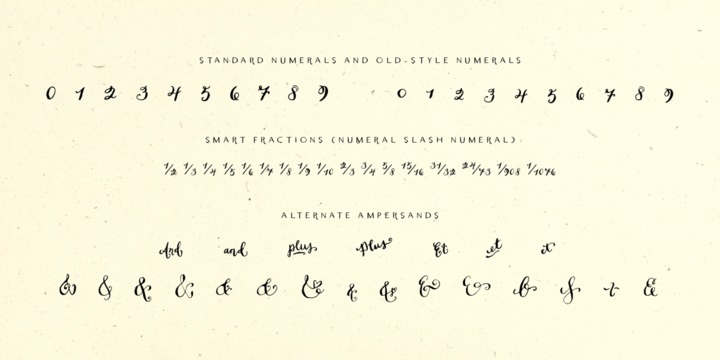 STANDARD NUMERALS AND OLD-STYLE NUMERALS
0 1 2 3 4 5 6 7 8 9 0 1 2 3 4 5 6 7 8 9
SMART FRACTIONS (NUMERAL SLASH NUMERAL)
1/2 1/3 1/4 1/5 1/6 1/7 1/8 1/9 1/10 2/3 3/4 5/8 15/16 31/32 24/73 1/908 1/1076
ALTERNATE AMPERSANDS
And and plus plus Et et et
& & & & & & & & & & & & & & &